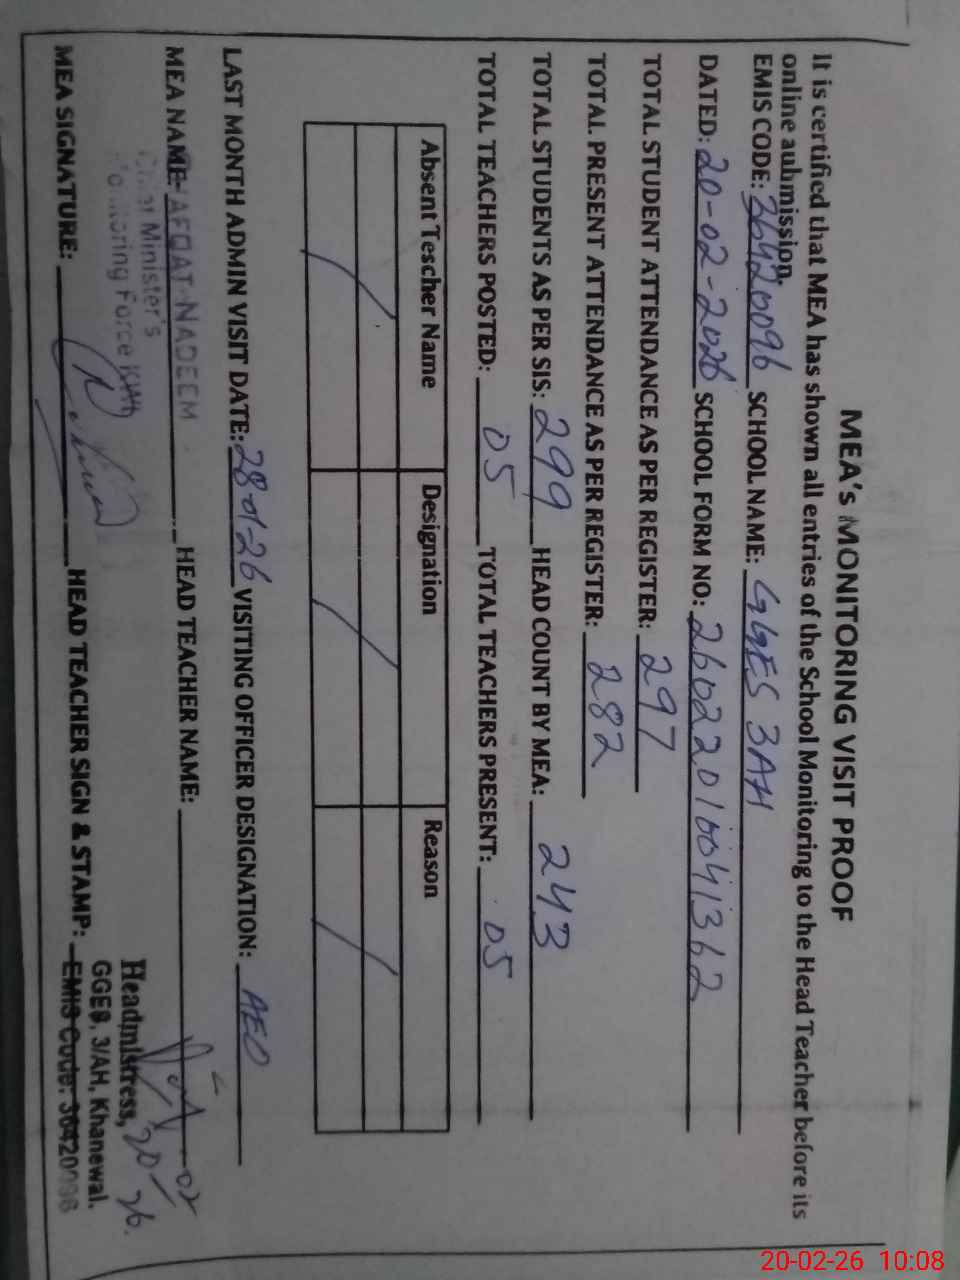 MEA's MONITORING VISIT PROOF
It is certified that MEA has shown all entries of the School Monitoring to the Head Teacher before its
online aubmission.
EMIS CODE: 36420096 SCHOOL NAME: GGES 3AH
DATED: 20-02-2026 SCHOOL FORM NO: 26022010041362
TOTAL STUDENT ATTENDANCE AS PER REGISTER: 297
TOTAL PRESENT ATTENDANCE AS PER REGISTER: 282
TOTAL STUDENTS AS PER SIS: 299 HEAD COUNT BY MEA: 243
TOTAL TEACHERS POSTED: 05 TOTAL TEACHERS PRESENT: 05
Absent Tescher Name Designation Reason
LAST MONTH ADMIN VISIT DATE: 28-01-26 VISITING OFFICER DESIGNATION: AEO
MEA NAME: AFQAT NADEEM HEAD TEACHER NAME:
Chief Minister's
Monitoring Force KWL
Headmistress,
GGES, 3/AH, Khanewal.
MEA SIGNATURE: HEAD TEACHER SIGN & STAMP: EMIS Code: 36420096
20-02-26 10:08